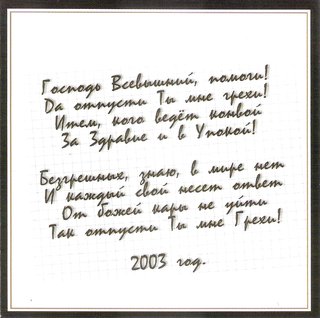 Господь Всевышний, помоги!
Да отпусти Ты мне грехи!
И тем, кого ведёт конвой
За Здравие и в Упокой!
Безгрешных, знаю, в мире нет
И каждый свой несет ответ
От Божей кары не уйти
Так отпусти Ты мне Грехи!
2003 год.